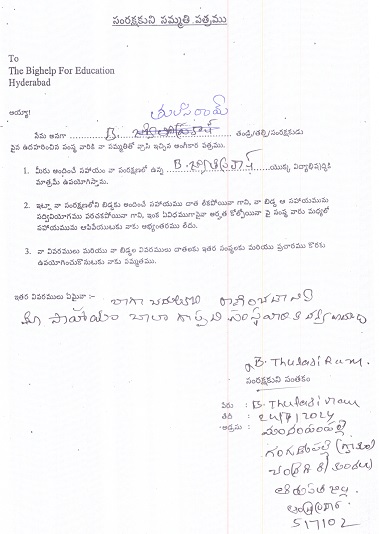 సంరక్షకుని సమ్మతి పత్రము
To
The Bighelp For Education
Hyderabad
అయ్యా!
తులసిరామ్
నేను అనగా ...... B. ...... తండ్రి/తల్లి/సంరక్షకుడు
పైన ఉదహరించిన సంస్థ వారికి నా సమ్మతితో వ్రాసి ఇచ్చిన అంగీకార పత్రము.
1. మీరు అందించే సహాయం నా సంరక్షణలో ఉన్న ...... B. ...... యొక్క విద్యాభివృద్ధికి
మాత్రమే ఉపయోగిస్తాను.
2. ఇట్లా నా సంరక్షణలోని బిడ్డకు అందించే సహాయము దాత లేకపోయినా గాని, నా బిడ్డ ఆ సహాయమును
సద్వినియోగము పరచకపోయినా గాని, ఇంక ఏవిధముగానైనా అర్హత కోల్పోయినా పై సంస్థ వారు మధ్యలో
సహాయమును ఆపివేయుటకు నాకు అభ్యంతరము లేదు.
3. నా వివరములు మరియు నా బిడ్డల వివరములు దాతలకు ఇతర సంస్థలకు మరియు ప్రచారము కొరకు
ఉపయోగించుకొనుటకు నాకు సమ్మతము.
ఇతర వివరములు ఏమైనా :- బాగా చదువుకుని
మీ సహాయం చాలా గొప్పది సంస్థవారికి
B. Thulasi Ram.
సంరక్షకుని సంతకం
పేరు : B. Thulasi ram
తేది : 24/7/2024
అడ్రసు :
(గ్రామం)
చంద్రగిరి (మండలం)
తిరుపతి జిల్లా.
ఆంధ్రప్రదేశ్.
517102